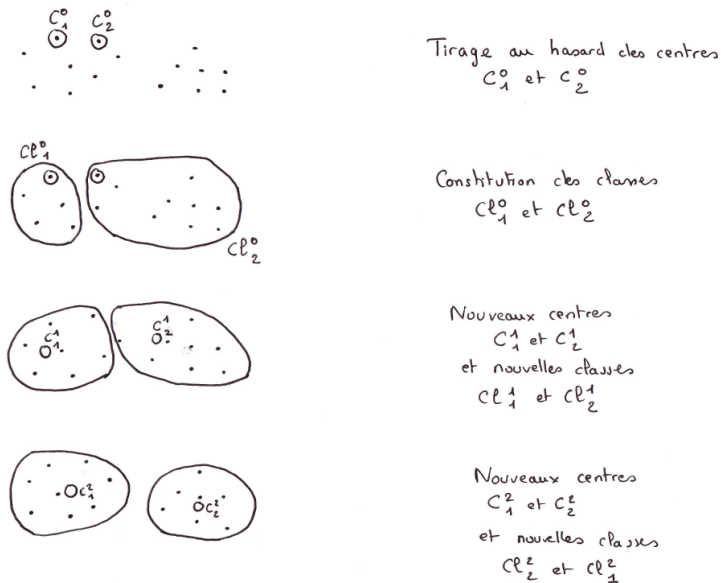 C₁⁰ C₂⁰
Tirage au hasard des centres
C₁⁰ et C₂⁰
Cl₁⁰
Constitution des classes
Cl₁⁰ et Cl₂⁰
Cl₂⁰
Nouveaux centres
C₁¹ C₂¹
C₁¹ et C₂¹
et nouvelles classes
Cl₁¹ et Cl₂¹
Nouveaux centres
C₁² C₂²
C₁² et C₂²
et nouvelles classes
Cl₂² et Cl₁²